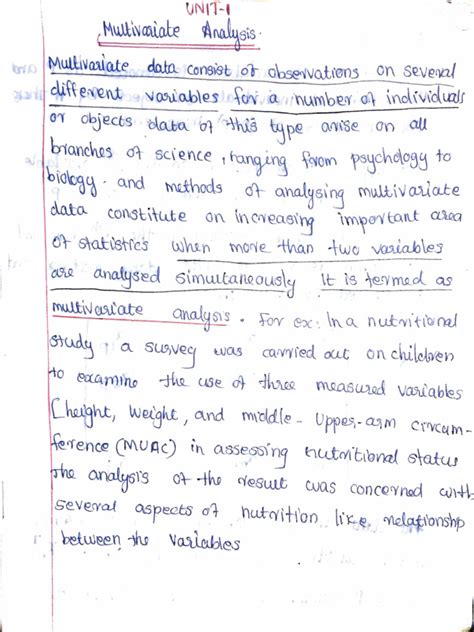 UNIT-1
Multivariate Analysis.
Multivariate data consist of observations on several
different variables for a number of individuals
or objects data of this type arise on all
branches of science, ranging from psychology to
biology. and methods of analysing multivariate
data constitute on increasing important area
of statistics when more than two variables
are analysed simultaneously It is termed as
multivariate analysis. For ex: In a nutritional
study a survey was carried out on children
to examine the use of three measured variables
[height, weight, and middle-Upper-arm circum-
ference (MUAC) in assessing nutritional status
the analysis of the result was concerned with
several aspects of nutrition like relationship
between the variables